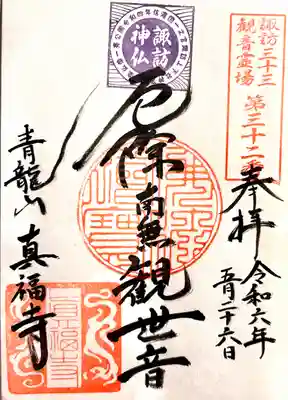 諏訪三十三
観音霊場
第三十二番
奉拝
令和六年
五月二十六日
諏訪
神仏
南無観世音
青龍山 真福寺